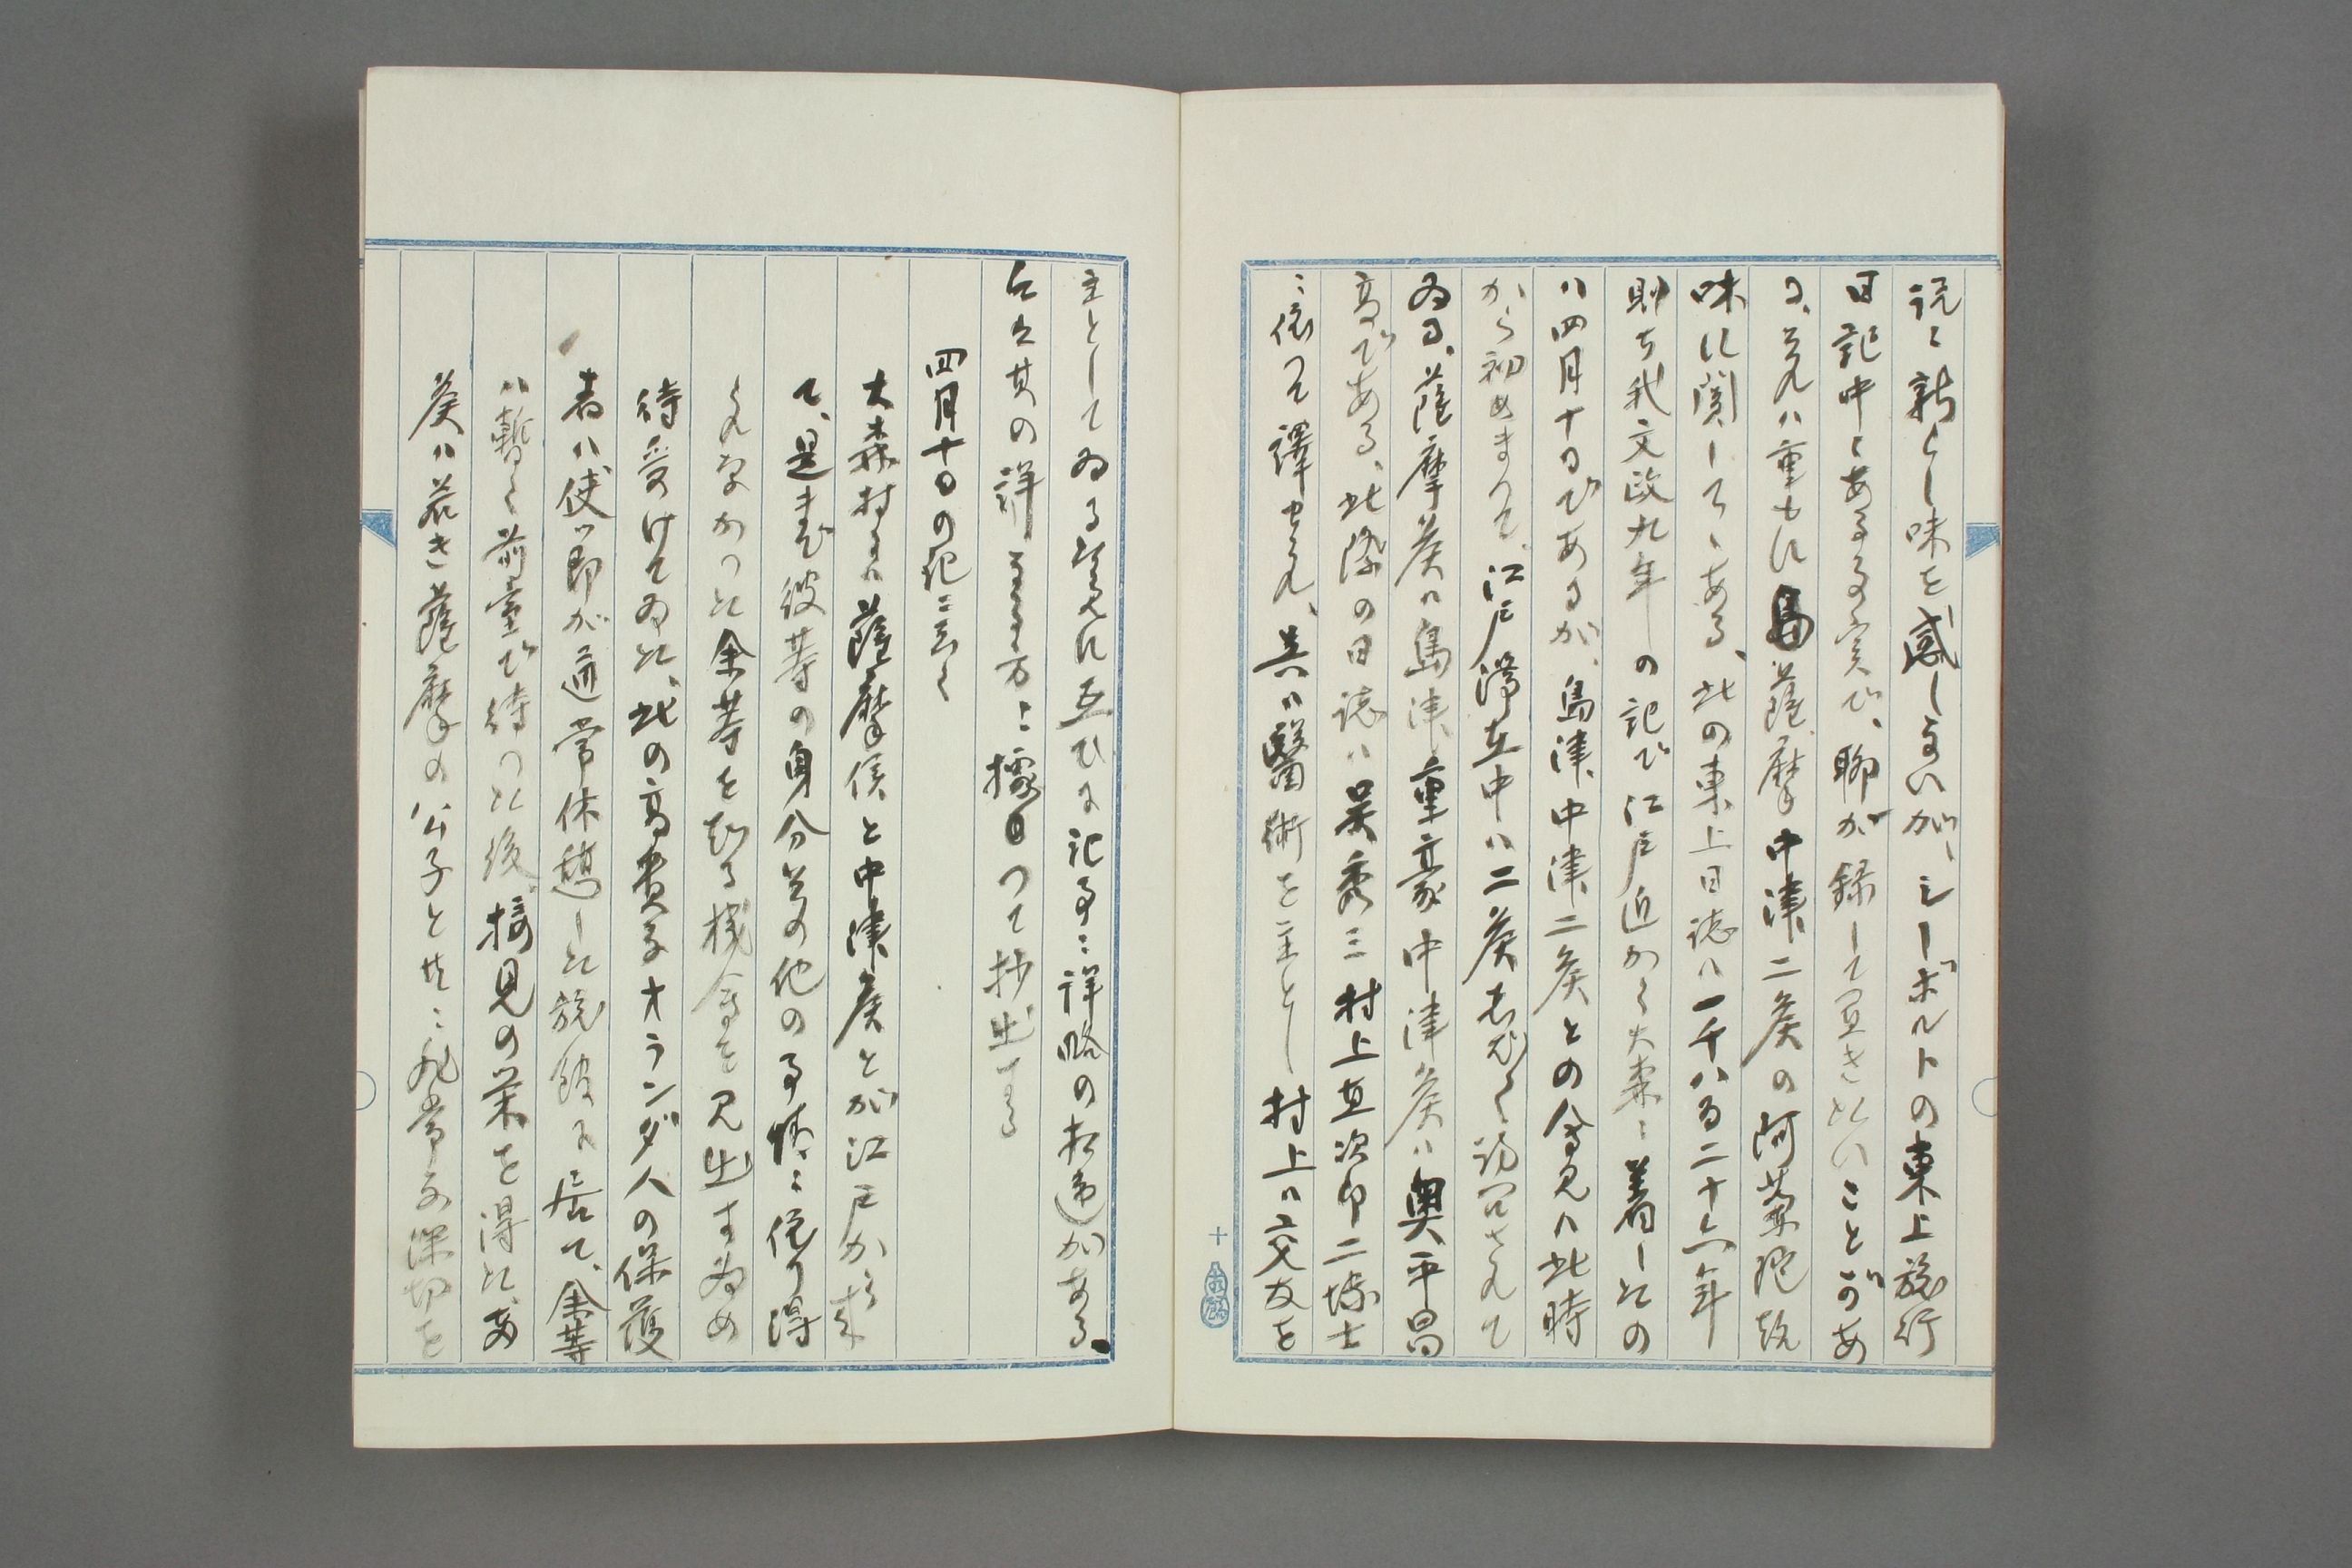 説に新らし味を感しないが、シーボルトの東上旅行
日記中にある事実で、聊か録して置きたいことがあ
る、それハ重もに島薩摩中津二侯の阿蘭陀趣
味に関してゞある、此の東上日誌ハ一千八百二十六年
則ち我文政九年の記で江戸近かく大森に着したの
ハ四月十日であるが、島津中津二侯との会見ハ此時
から初めまつて、江戸滞在中ハ二侯しば〱訪問されて
ゐる、薩摩侯ハ島津重豪中津侯ハ奥平昌
高である、此際の日誌ハ呉秀三村上直次郎二博士
に依つて譯せられ、呉ハ醫術を主とし村上ハ交友を
主としてゐる夫れに互ひに記事に詳略の相違がある、
仍て其の詳なる方に據つて抄出する
四月十日の記に云く
大森村にハ薩摩侯と中津侯とが江戸から来
て、是まで彼等の身分其の他の事情に依り得
られなかつた余等を知る機会を見出すため
待受けてゐた、此の高貴なオランダ人の保護
者ハ使節が通常休憩した旅館に居て、余等
ハ暫く前室で待つた後、接見の栄を得た、両
侯ハ若き薩摩の公子と共に非常な深切を
十